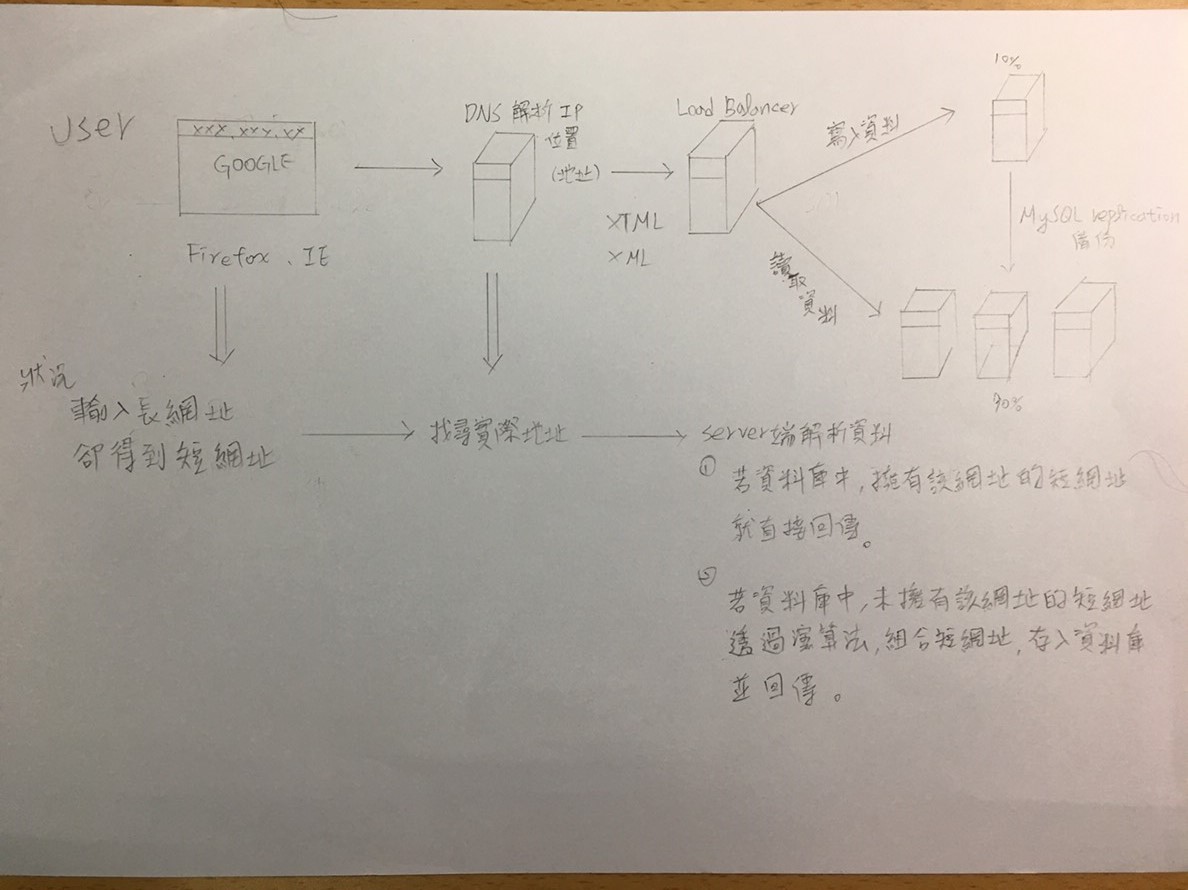 user
xxx.xxx.xx
GOOGLE
Firefox、IE
DNS 解析 IP
位置
(地址)
XTML
XML
Load Balancer
寫入資料
讀取
資料
10%
MySQL replication
備份
90%
狀況
輸入長網址
卻得到短網址
找尋實際地址
server端解析資料
① 若資料庫中,擁有該網址的短網址
就直接回傳。
② 若資料庫中,未擁有該網址的短網址
透過演算法,組合短網址,存入資料庫
並回傳。